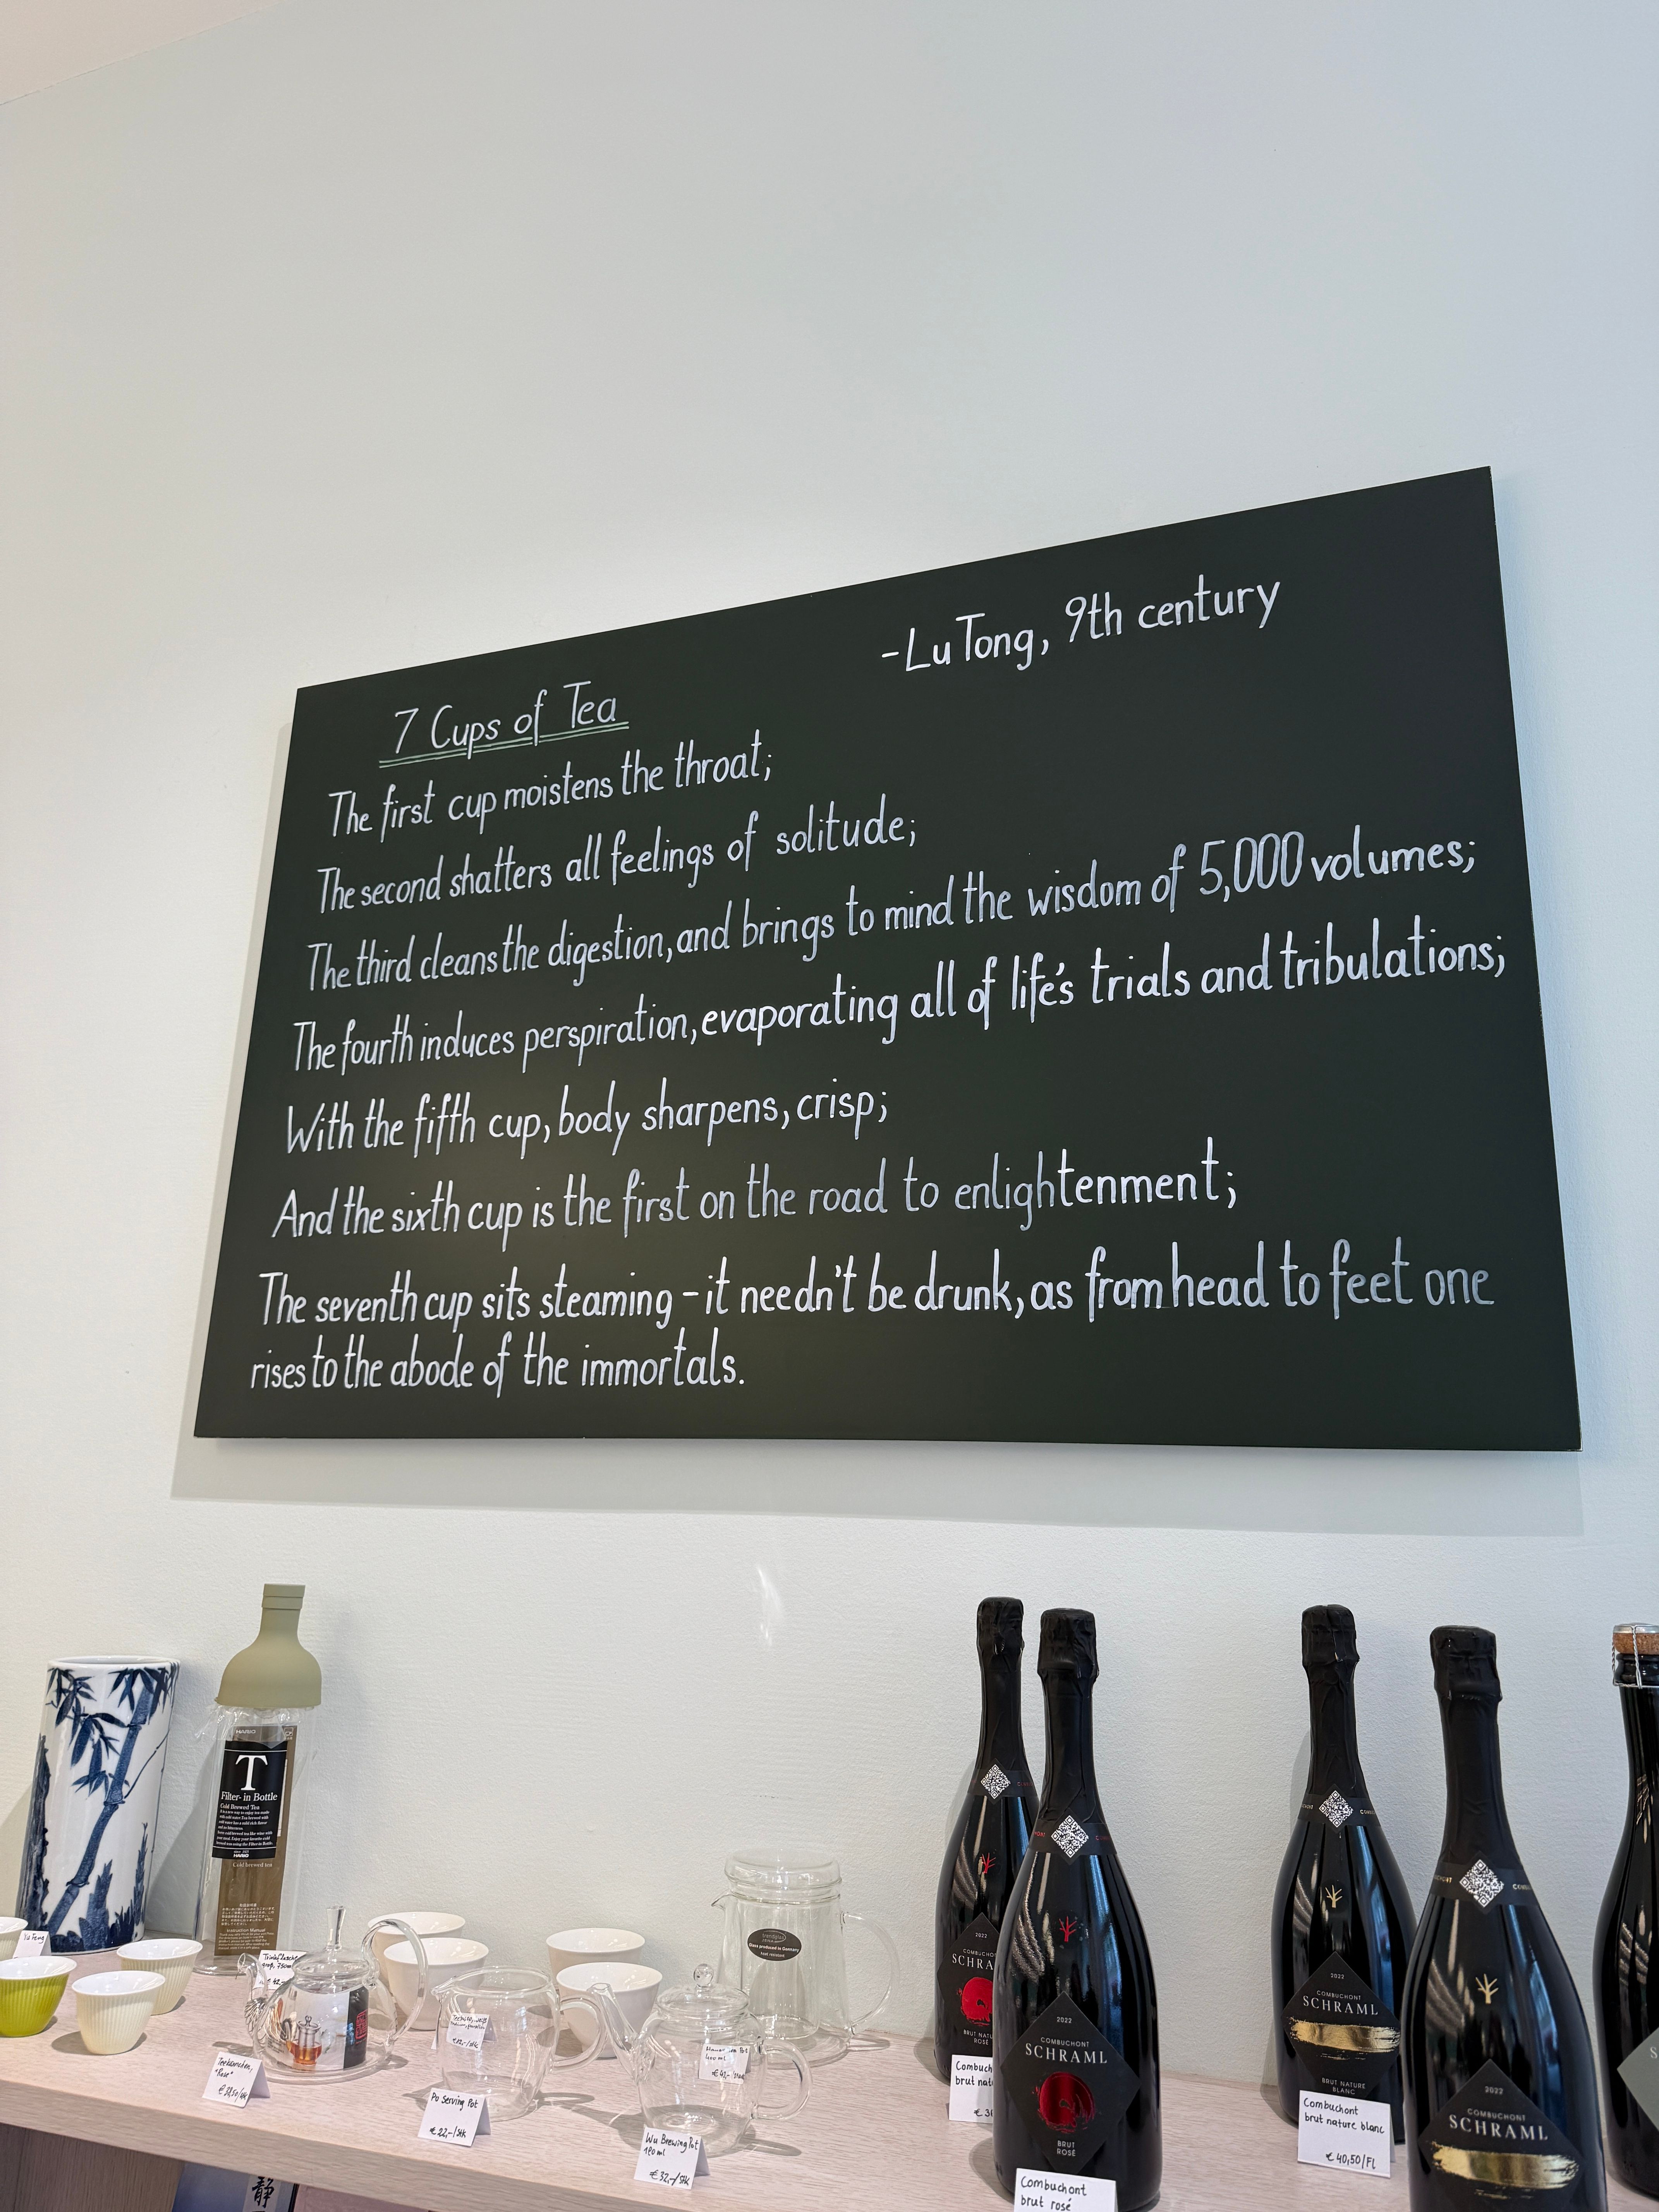 -Lu Tong, 9th century
7 Cups of Tea
The first cup moistens the throat;
The second shatters all feelings of solitude;
The third cleans the digestion, and brings to mind the wisdom of 5,000 volumes;
The fourth induces perspiration, evaporating all of life's trials and tribulations;
With the fifth cup, body sharpens, crisp;
And the sixth cup is the first on the road to enlightenment;
The seventh cup sits steaming - it needn't be drunk, as from head to feet one
rises to the abode of the immortals.
HARIO
T
Filter-in Bottle
Cold Brewed Tea
HARIO
Cold brewed tea
Instruction Manual
Yu Feng
Trinkflasche
Po Serving Pot
€ 22,-/Stk
Wu Brewing Pot
190ml
€ 32,-/Stk
trendglas
JENA
Glass produced in Germany
heat resistant
2022
COMBUCHONT
SCHRA
BRUT NATU
ROSÉ
Combuch
brut nat
2022
COMBUCHONT
SCHRAML
BRUT
ROSÉ
Combuchont
brut rosé
2022
COMBUCHONT
SCHRAML
BRUT NATURE
BLANC
Combuchont
brut nature blanc
€ 40,50/Fl
2022
COMBUCHONT
SCHRAML
静